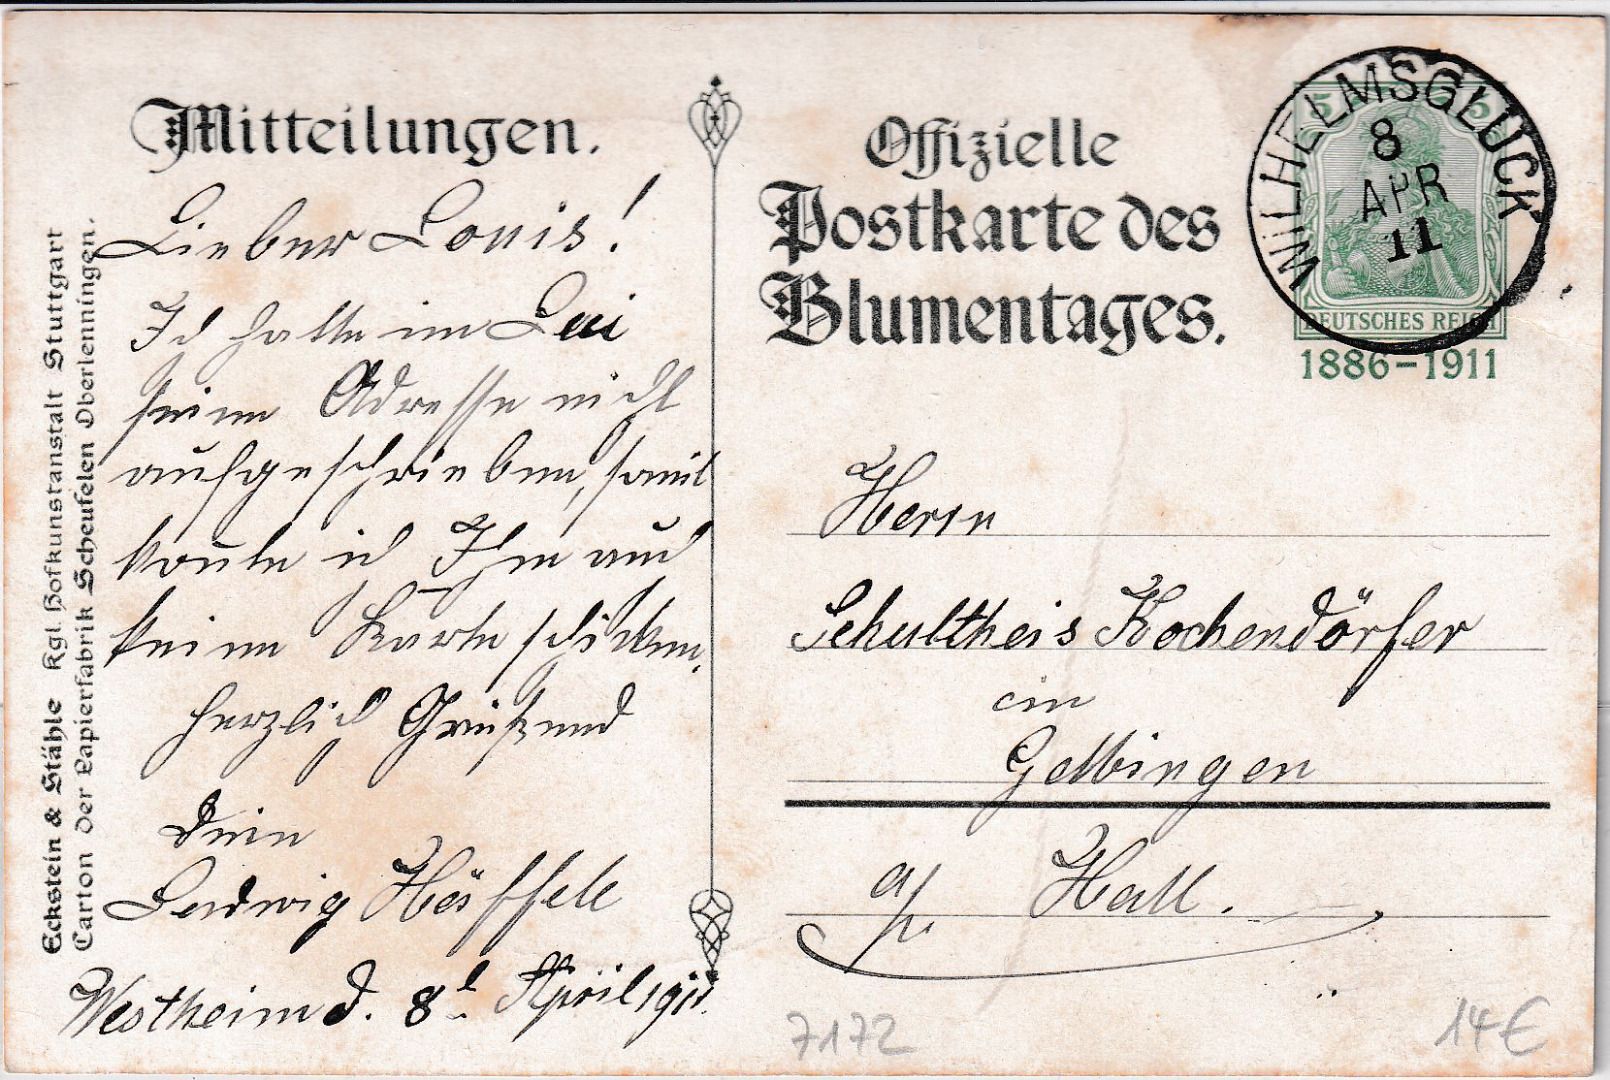 Mitteilungen.
Lieber Louis!
Ich hatte im
seine Adresse nicht
aufgeschrieben, somit
konnte ich Ihm auch
keine Karte schicken.
herzlich Grüßend
Dein
Ludwig
Westheim d. 8t April 1911.
Eckstein & Stähle Kgl. Hofkunstanstalt Stuttgart
Carton der Papierfabrik Scheufelen Oberlenningen.
Offizielle
Postkarte des
Blumentages.
WILHELMSGLÜCK
8
APR
11
5 5
DEUTSCHES REICH
1886-1911
Herrn
Schultheis Kochendörfer
in
Gelbingen
Hall.
7172
14€